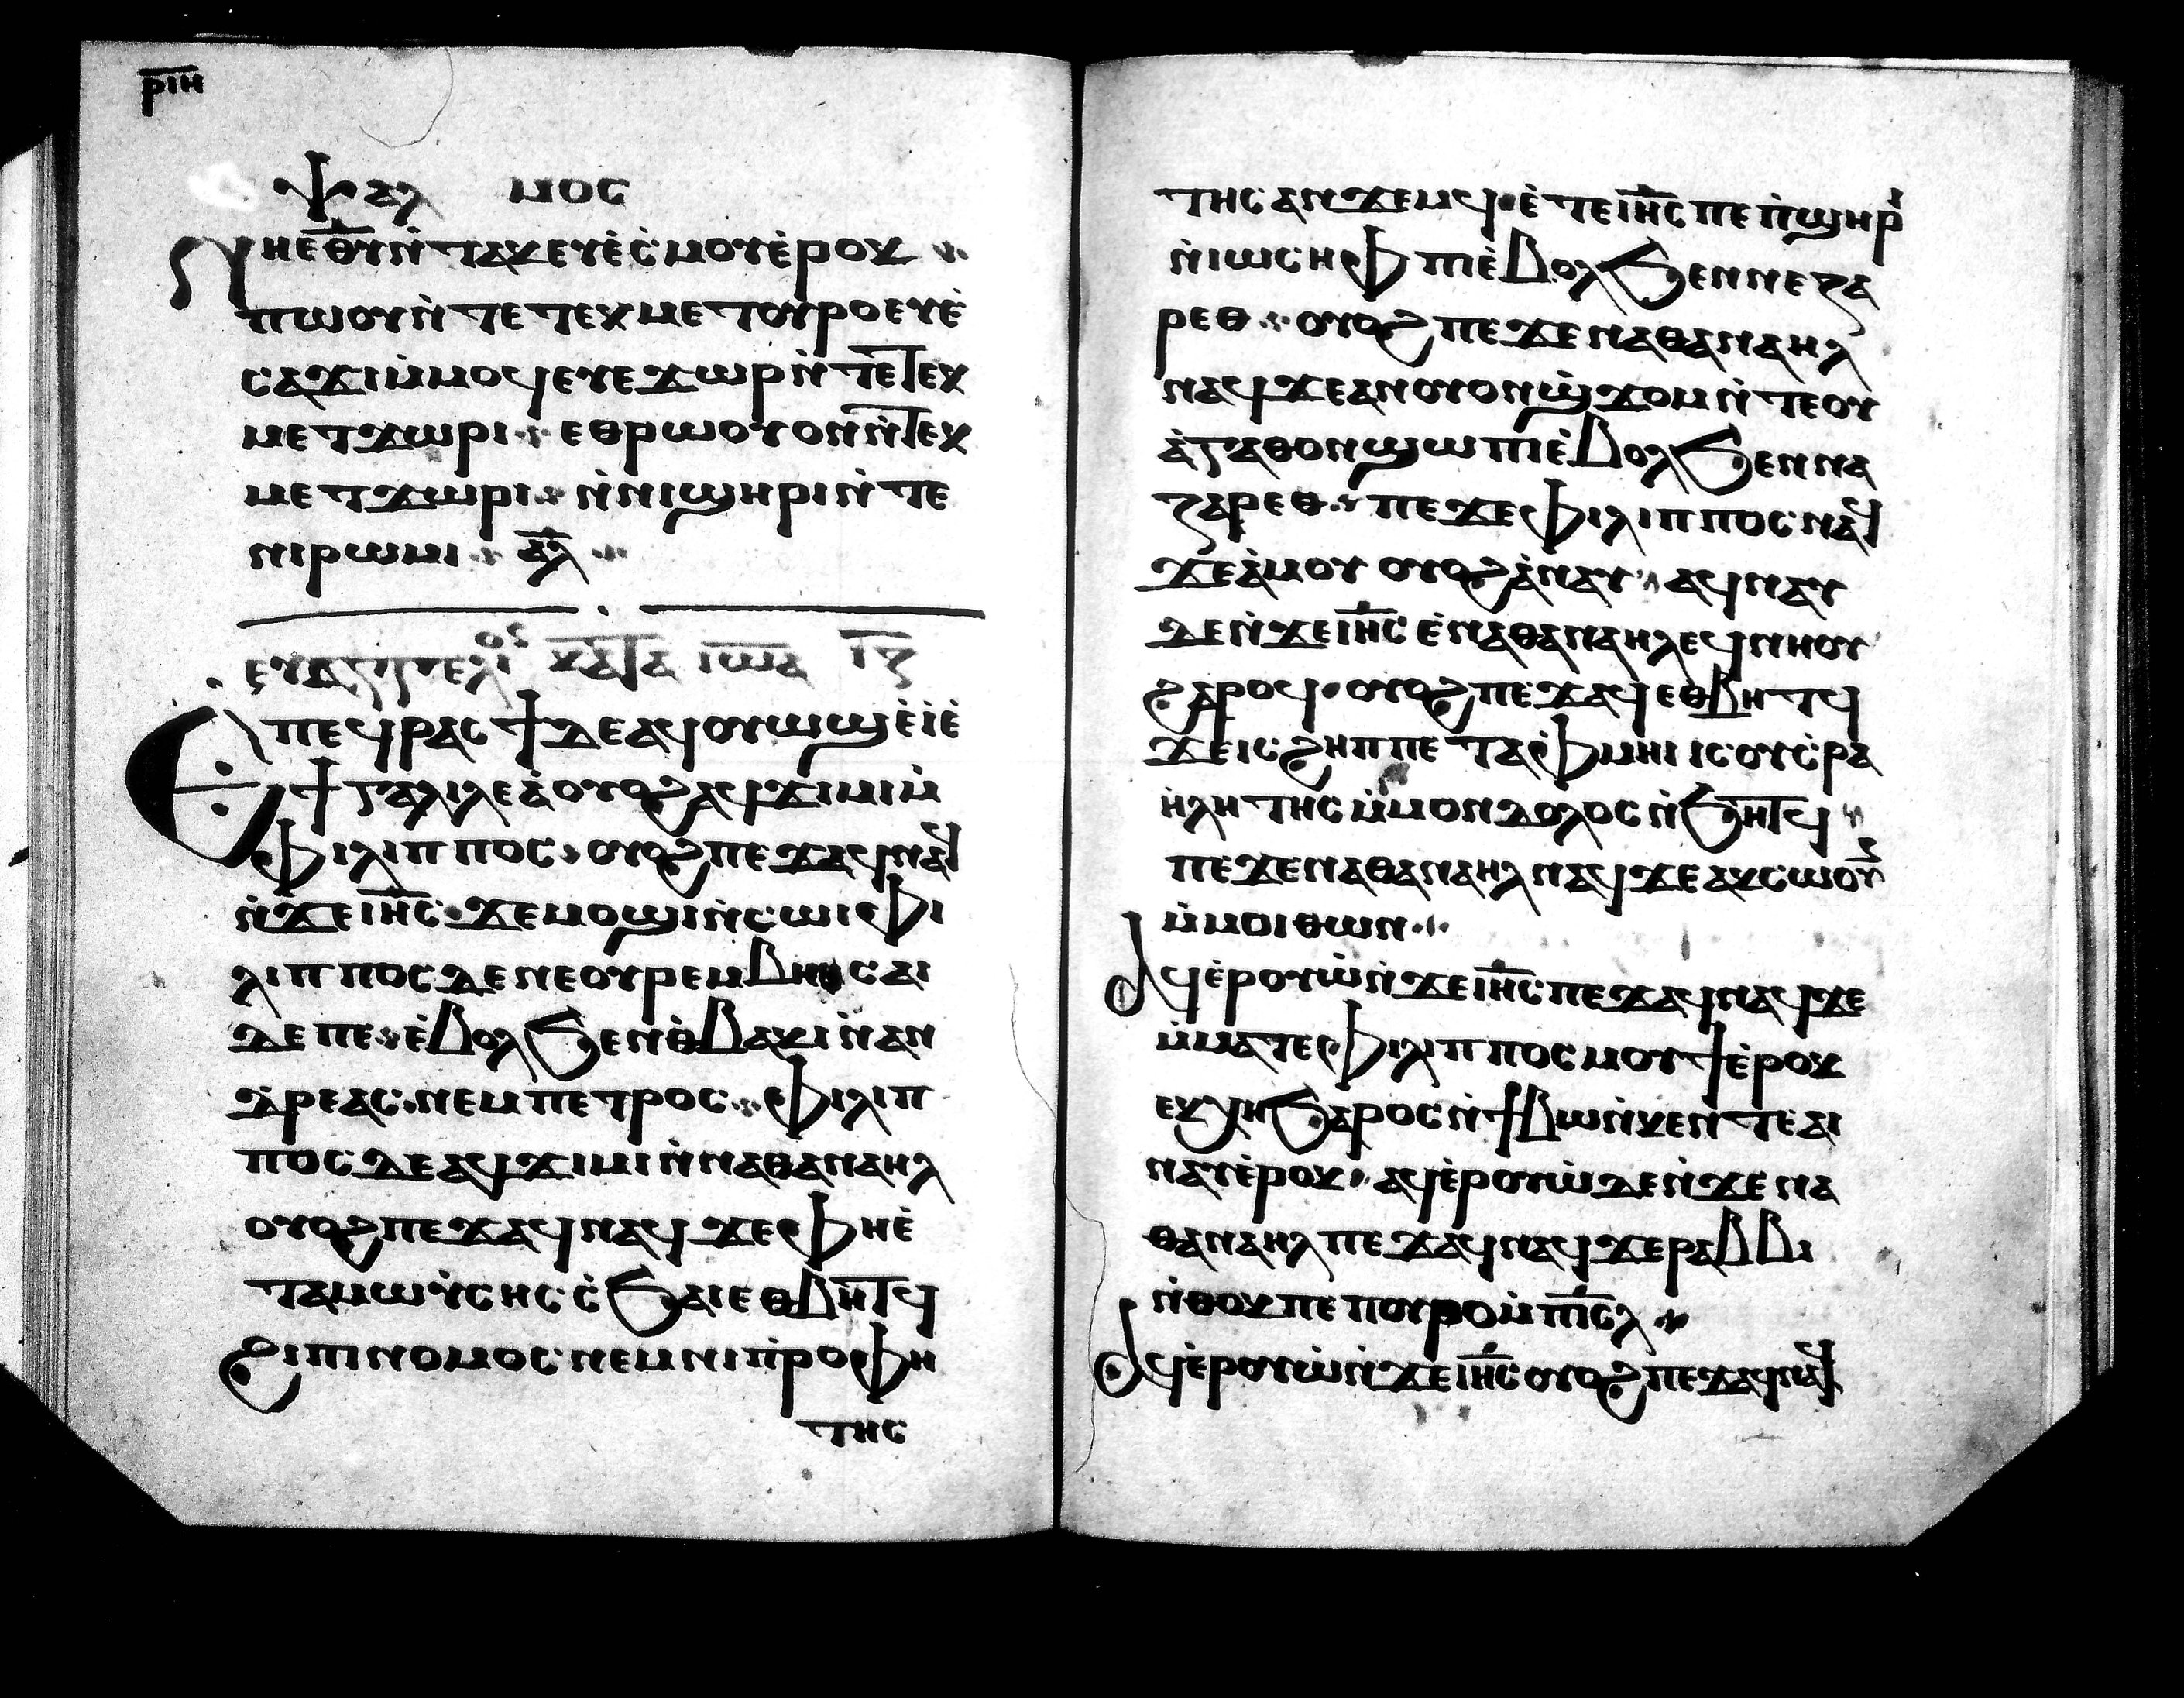 ⲣⲓⲏ
Ⲯⲁⲗ ⲙⲟⲥ
Ⲛⲏⲉⲑ̅ⲩ̅ⲛ̀ⲧⲁⲕⲉⲩⲉ̀ⲥ̀ⲙⲟⲩⲉ̀ⲣⲟⲕ
ⲡⲱⲟⲩⲛ̀ⲧⲉⲧⲉⲕⲙⲉⲧⲟⲩⲣⲟⲉⲩⲉ̀
ⲥⲁϫⲓⲙ̀ⲙⲟϥⲉⲩⲉϫⲱⲣⲛ̀ⲧⲉⲧⲉⲕ
ⲙⲉⲧϫⲱⲣⲓ ⲉⲑⲣⲱⲟⲩⲟⲛⲛ̀ⲧⲉⲕ
ⲙⲉⲧϫⲱⲣⲓ ⲛ̀ⲛⲓϣⲏⲣⲓⲛ̀ⲧⲉ
ⲛⲓⲣⲱⲙⲓ ⲁ̅ⲗ̅
ⲉⲩⲁⲅⲅⲉⲗⲓⲟⲥ ⲕⲁⲧⲁ ⲓⲱⲁ ⲓ̅ⲍ̅
Ⲉⲡⲉϥⲣⲁⲥϯⲇⲉⲁϥⲟⲩⲱϣⲉ̀ⲓ̀ⲉ̀
ϯⲅⲁⲗⲓⲗⲉⲁ̀ⲟⲩⲟϩⲁϥϫⲓⲙⲓⲙ̀
ⲫⲓⲗⲓⲡⲡⲟⲥ ⲟⲩⲟϩⲡⲉϫⲁϥⲛⲁϥ
ⲛ̀ϫⲉⲓ̅ⲏ̅ⲥ̅ ϫⲉⲙⲟϣⲓⲛ̀ⲥⲱⲓⲫⲓ
ⲗⲓⲡⲡⲟⲥⲇⲉⲛⲉⲟⲩⲣⲉⲙⲃⲏⲑⲥⲁⲓ
ⲇⲉⲡⲉ ⲉ̀ⲃⲟⲗϧⲉⲛⲑ̀ⲃⲁⲕⲓⲛ̀ⲁⲛ
ⲇⲣⲉⲁⲥ ⲛⲉⲙⲡⲉⲧⲣⲟⲥ ⲫⲓⲗⲓⲡ
ⲡⲟⲥⲇⲉⲁϥϫⲓⲙⲓⲛ̀ⲛⲁⲑⲁⲛⲁⲏⲗ
ⲟⲩⲟϩⲡⲉϫⲁϥⲛⲁϥϫⲉⲫⲏⲉ̀
ⲧⲁⲙⲱⲩ̀ⲥⲏⲥⲥ̀ϧⲁⲓⲉⲑⲃⲏⲧϥ
ϩⲓⲡⲓⲛⲟⲙⲟⲥⲛⲉⲙⲛⲓⲡ̀ⲣⲟⲫⲏ
ⲧⲏⲥ
ⲧⲏⲥⲁⲛϫⲉⲙϥ ⲉ̀ⲧⲉⲓ̅ⲏ̅ⲥ̅ⲡⲉⲡ̀ϣⲏⲣⲓ
ⲛ̀ⲓⲱⲥⲏⲫⲡⲓⲉ̀ⲃⲟⲗϧⲉⲛⲛⲉⲍⲁ
ⲣⲉⲑ ⲟⲩⲟϩⲡⲉϫⲉⲛⲁⲑⲁⲛⲁⲏⲗ
ⲛⲁϥϫⲉⲁⲛⲟⲩⲟⲛϣ̀ϫⲟⲙⲛ̀ⲧⲉⲟⲩ
ⲁ̀ⲅⲁⲑⲟⲛϣⲱⲡⲓⲉ̀ⲃⲟⲗϧⲉⲛⲛⲁ
ⲍⲁⲣⲉⲑ ⲡⲉϫⲉⲫⲓⲗⲓⲡⲡⲟⲥⲛⲁϥ
ϫⲉⲁ̀ⲙⲟⲩ ⲟⲩⲟϩⲁ̀ⲛⲁⲩ ⲁϥⲛⲁⲩ
ⲇⲉⲛ̀ϫⲉⲓ̅ⲏ̅ⲥ̅ⲉ̀ⲛⲁⲑⲁⲛⲁⲏⲗⲉϥⲛⲏⲟⲩ
ϩⲁⲣⲟϥ ⲟⲩⲟϩⲡⲉϫⲁϥⲉⲑⲃⲏⲧϥ
ϫⲉⲓⲥϩⲏⲡⲡⲉⲧⲁⲫⲙⲏⲓⲓⲥⲟⲩⲥ̀ⲣⲁ
ⲏ̀ⲗⲏⲧⲏⲥⲙ̀ⲙⲟⲛⲇⲟⲗⲟⲥⲛ̀ϧⲏⲧϥ
ⲡⲉϫⲉⲛⲁⲑⲁⲛⲁⲏⲗⲛⲁϥϫⲉⲁⲕⲥⲱⲟⲩⲛ
ⲙ̀ⲙⲟⲓⲑⲱⲛ
Ⲁϥⲉ̀ⲣⲟⲩⲱ̀ⲛ̀ϫⲉⲓ̅ⲏ̅ⲥ̅ⲡⲉϫⲁϥⲛⲁϥϫⲉ
ⲙ̀ⲙⲁⲧⲉⲫⲓⲗⲓⲡⲡⲟⲥⲙⲟⲩϯⲉ̀ⲣⲟⲕ
ⲉⲕⲭⲏϧⲁⲣⲟⲥⲛ̀ϯⲃⲱⲛ̀ⲕⲉⲛⲧⲉⲁⲓ
ⲛⲁⲩⲉ̀ⲣⲟⲕ ⲁϥⲉ̀ⲣⲟⲩⲱ̀ⲇⲉⲛ̀ϫⲉⲛⲁ
ⲑⲁⲛⲁⲏⲗⲡⲉϫⲁϥⲛⲁϥϫⲉⲣⲁⲃⲃⲓ
ⲛ̀ⲑⲟⲕⲡⲉⲡⲟⲩⲣⲟⲙ̀ⲡⲓ̅ⲥ̅ⲗ̅
Ⲁϥⲉ̀ⲣⲟⲩⲱ̀ⲛ̀ϫⲉⲓ̅ⲏ̅ⲥ̅ⲟⲩⲟϩⲡⲉϫⲁϥⲛⲁϥ